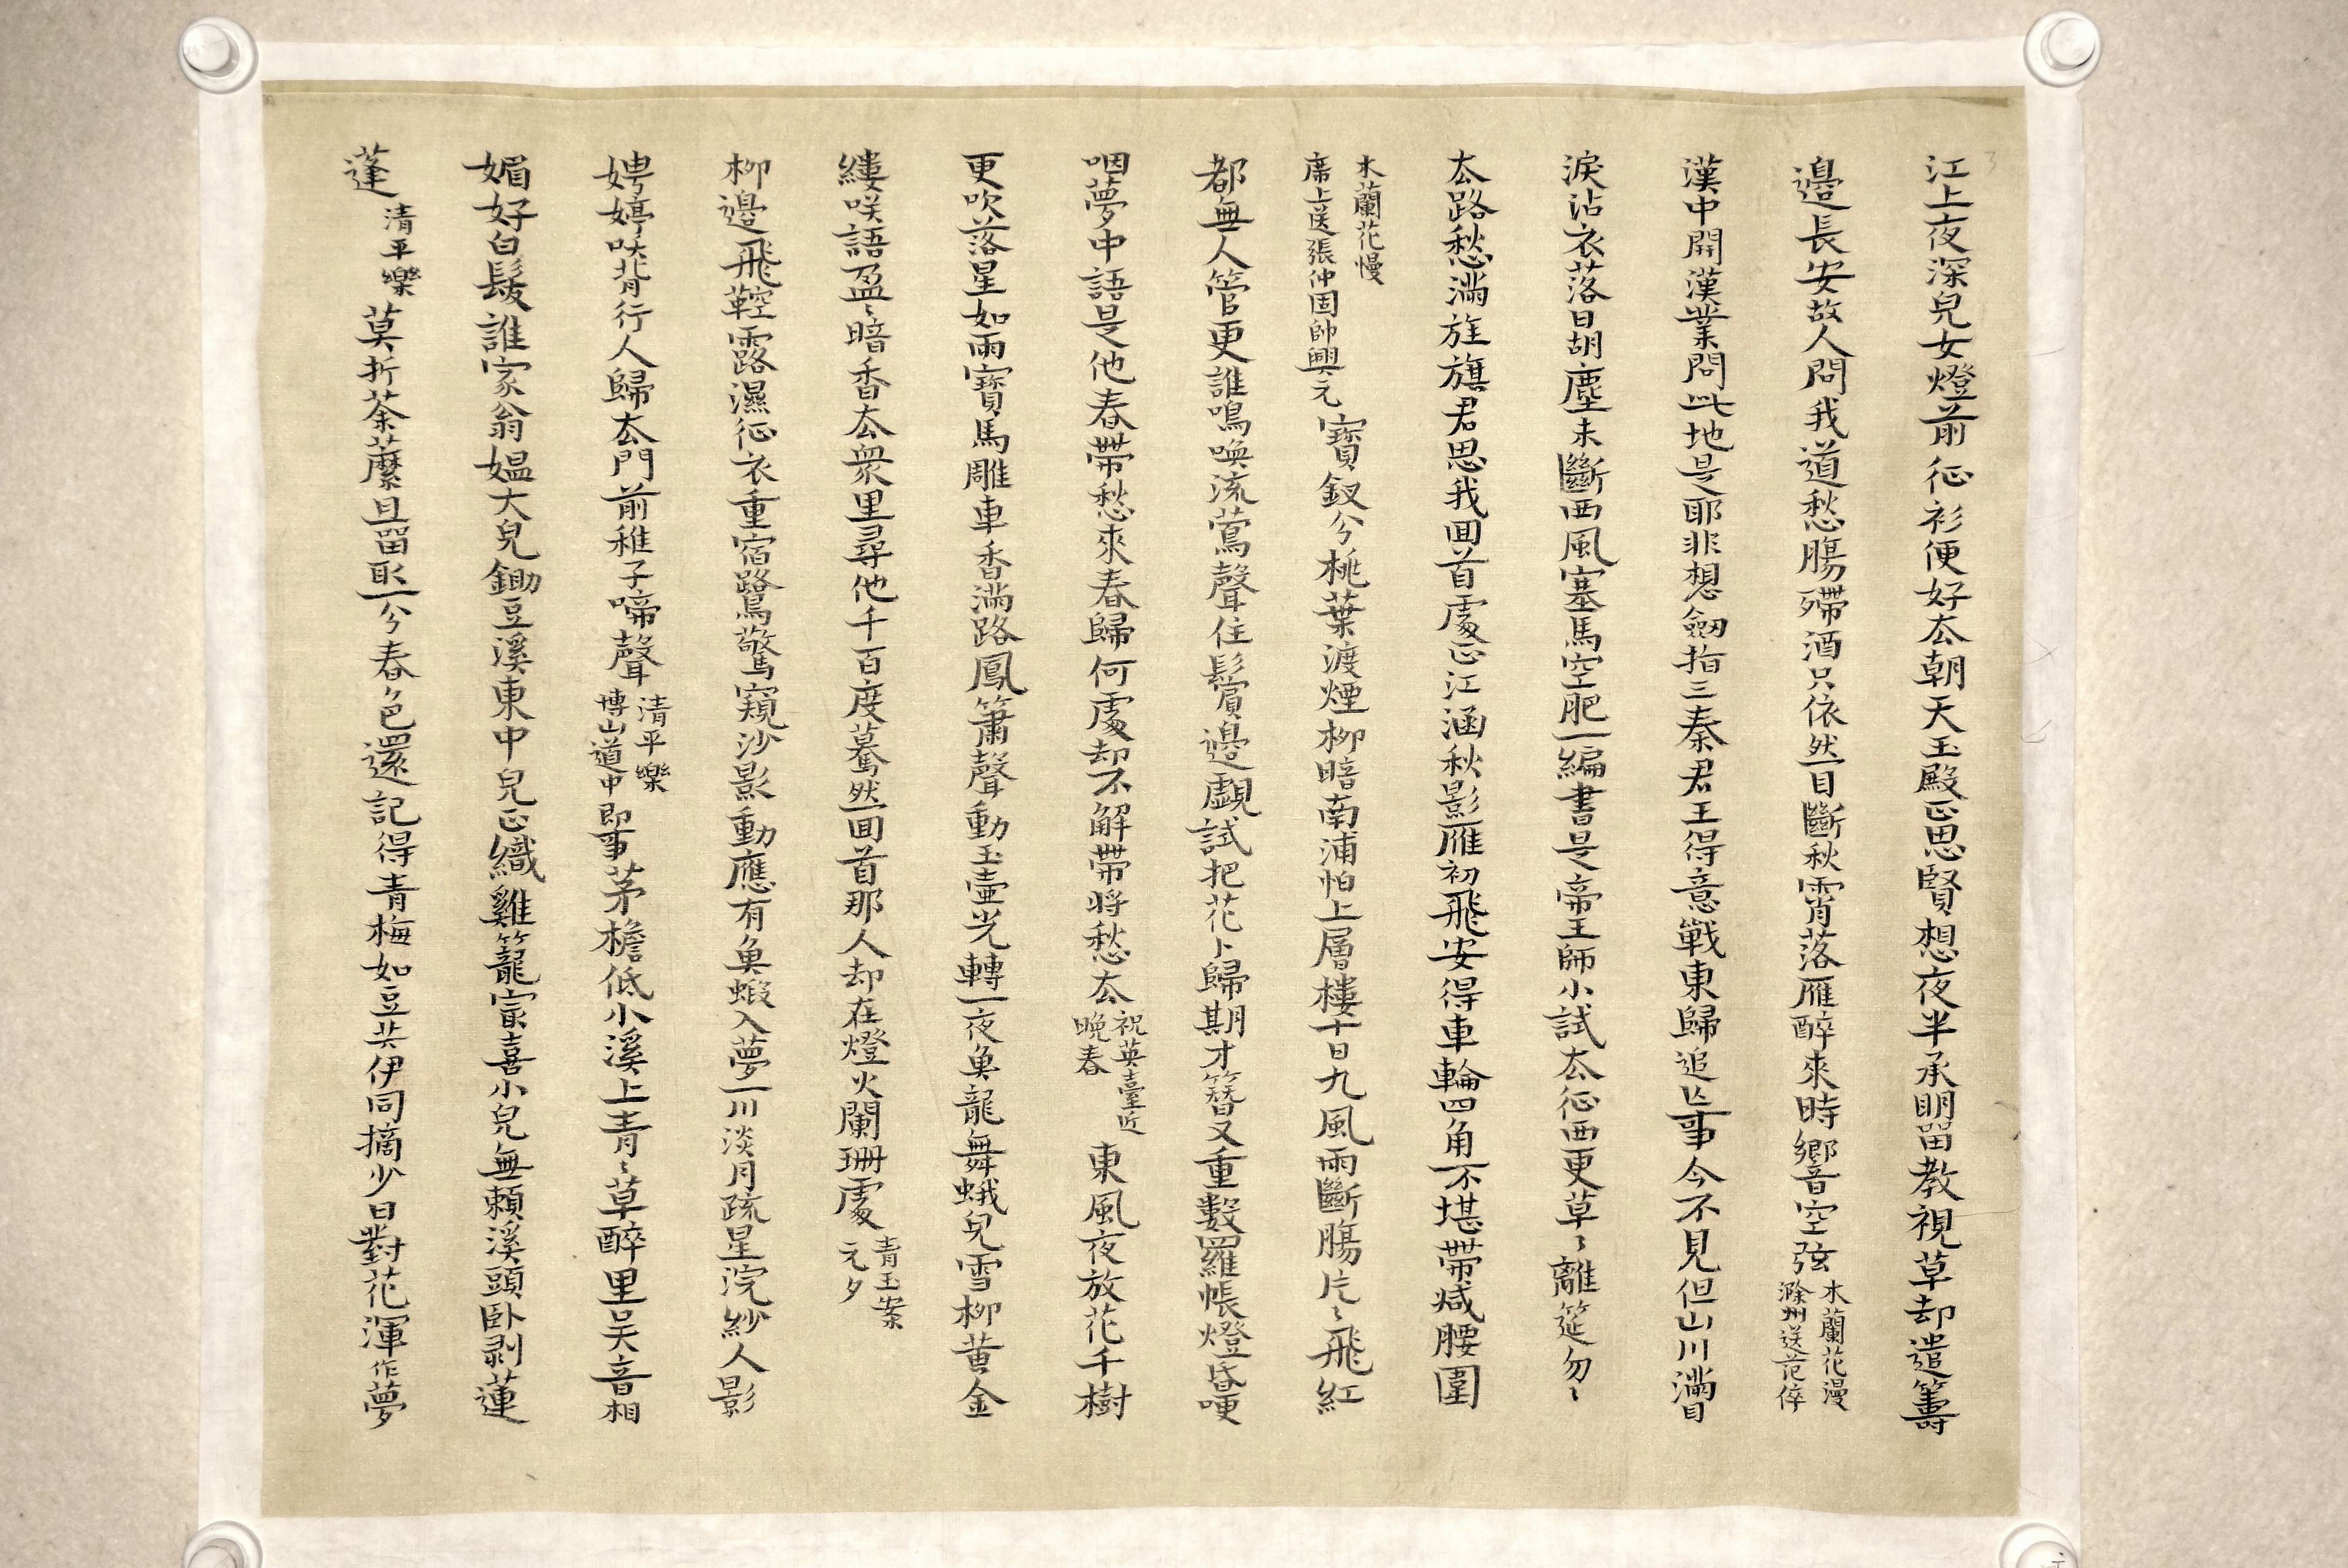 江上夜深兒女燈前征衫便好去朝天玉殿正思賢想夜半承明留教視草却遣籌
邊長安故人問我道愁腸殢酒只依然目斷秋霄落雁醉來時響空弦木蘭花漫
滁州送范倅
漢中開漢業問此地是耶非想劔指三秦君王得意戰東歸追亡事今不見但山川滿目
淚沾衣落日胡塵未斷西風塞馬空肥一編書是帝王師小試去征西更草〻離筵匆〻
去路愁滿旌旗君思我回首處正江涵秋影雁初飛安得車輪四角不堪帶减腰圍
木蘭花慢
席上送張仲固帥興元寶釵分桃葉渡煙柳暗南浦怕上層樓十日九風雨斷腸片〻飛紅
都無人管更誰鳴喚流鶯聲住鬢邊覷試把花卜歸期才簪又重數羅帳燈昏哽
咽夢中語是他春帶愁來春歸何處却不解帶將愁去祝英臺近
晚春東風夜放花千樹
更吹落星如雨寶馬雕車香滿路鳳簫聲動玉壺光轉一夜魚龍舞蛾兒雪柳黃金
縷咲語盈〻暗香去衆里尋他千百度驀然回首那人却在燈火闌珊處青玉案
元夕
柳邊飛鞚露濕征衣重宿鷺驚窺沙影動應有魚蝦入夢一川淡月疏星浣紗人影
娉婷咲背行人歸去門前稚子啼聲清平樂
博山道中即事茅檐低小溪上青〻草醉里吴音相
媚好白髮誰家翁媪大兒鋤豆溪東中兒正織雞籠㝡喜小兒無賴溪頭卧剥蓮
蓬清平樂莫折荼蘼且留取一分春色還記得青梅如豆共伊同摘少日對花渾作夢